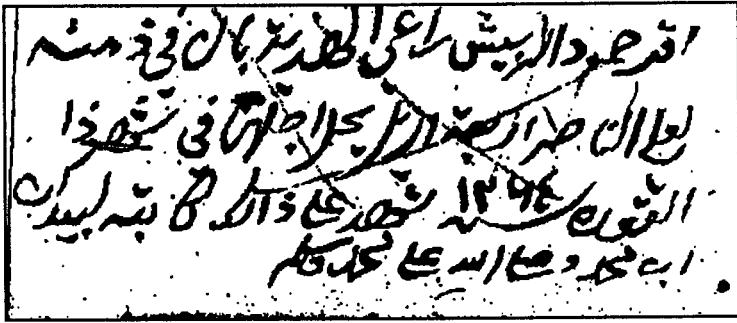 اقر حمود الربيش راعي الطرفيه بان في ذمته
لعلي ال اربعة اريل يحل اجلهن في شهر ذا
القعده سنه ١٢٩٤ شهد على ذالك كاتبه لبيدان
ابن محمد وصلى الله على محمد وسلم